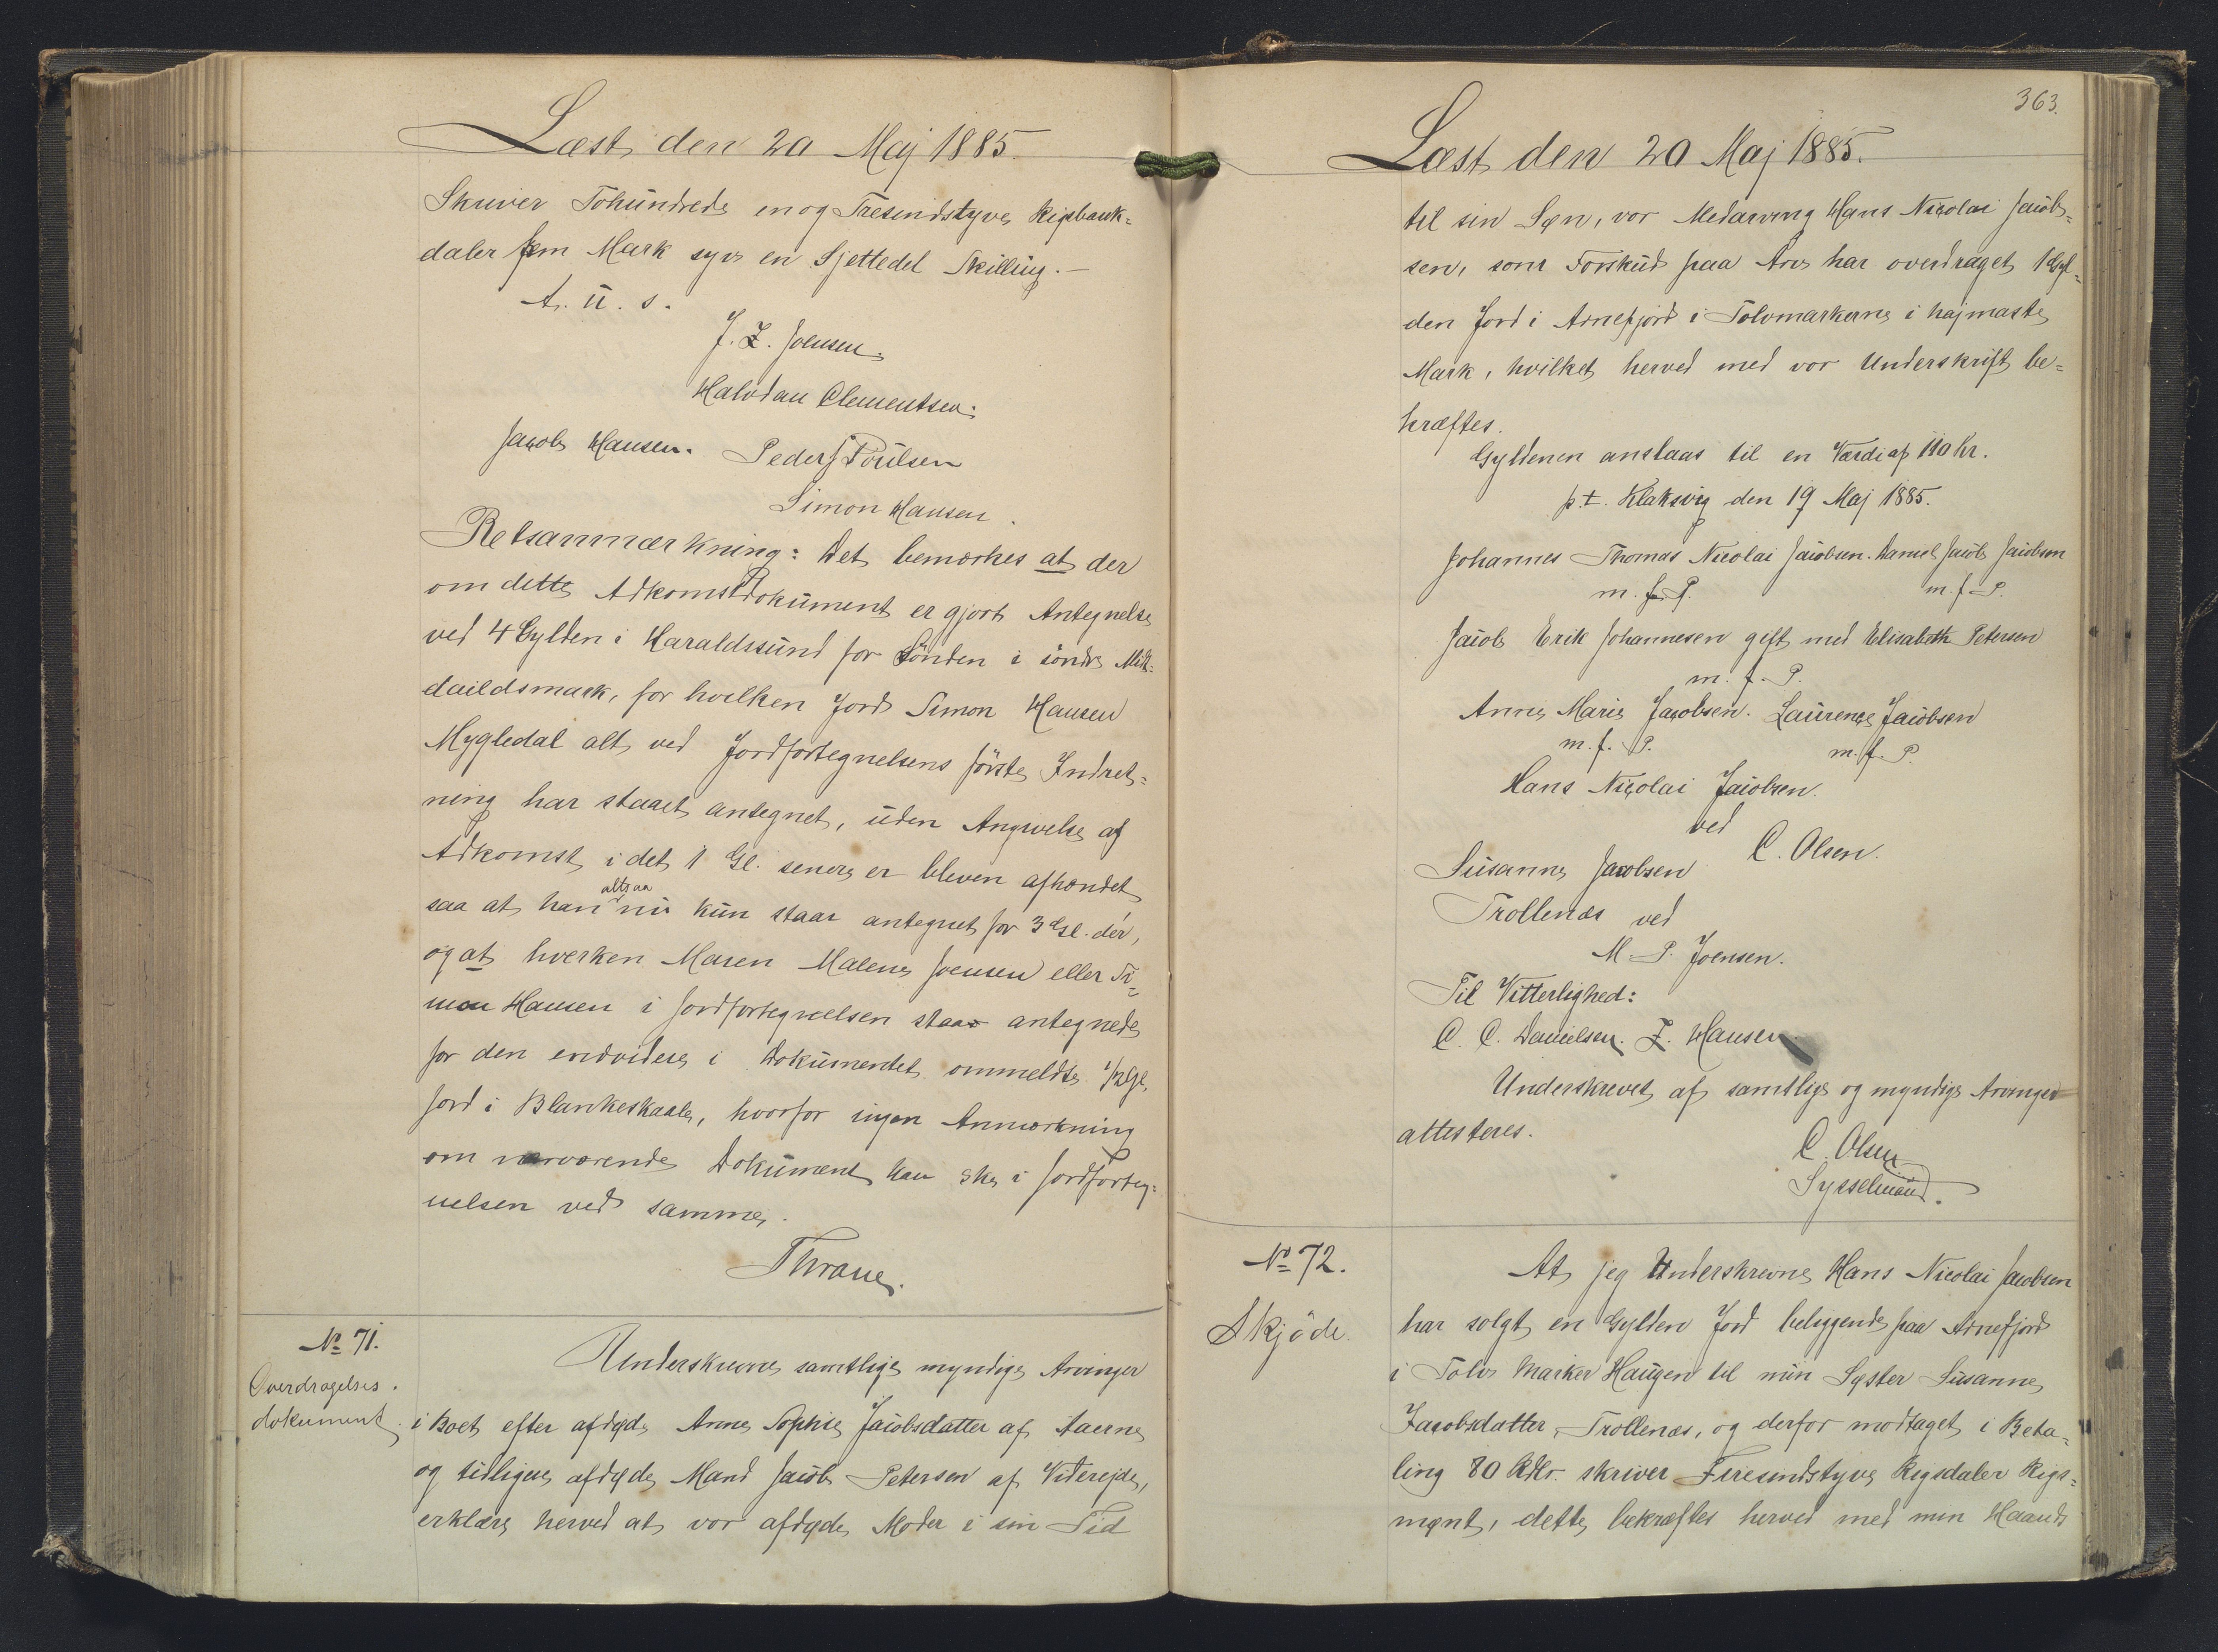 Læst den 20 Maj 1885.
Skriver Tohundrede en og Tresindstyve Rigsbank-
daler fem Mark syv en Sjettedel Skilling.-
A. u. s.
J. Z. Joensen.
Halvdan Clementsen.
Jacob Hansen. Peder J Poulsen
Simon Hansen.
Retsanmærkning: Det bemærkes at der
om dette Adkomstdokument er gjort Antegnelse
ved 4 Gylden i Haraldssund for Sönden i söndre Mid-
daildsmark, for hvilken Jord Simon Hansen
Mygledal alt ved Jordfortegnelsens förste Indret-
ning har staaet antegnet, uden Angivelse af
Adkomst, i det 1 Gl. senere er bleven afhændet
saa at han altsaa nu kun staar antegnet for 3 Gl. dér,
og at hverken Maren Malene Joensen eller Si-
mon Hansen i Jordfortegnelsen staar antegnede
for den endvidere i Dokumentet ommeldte 1/2 Gl.
Jord i Blankeskaale, hvorfor ingen Anmærkning
om nærværende Dokument kan ske i Jordforteg-
nelsen ved samme.
Thrane.
No 71.
Overdragelses.
dokument.
Underskrevne samtlige myndige Arvinger
i Boet efter afdøde Anne Sophie Jacobsdatter af Aaerne
og tidligere afdøde Mand Jacob Petersen af Videreide,
erklære herved at vor afdøde Moder i sin Tid
363.
Læst den 20 Maj 1885.
til sin Søn, vor Medarving Hans Nicolai Jacob-
sen, som Forskud paa Arv har overdraget 1 Gyl-
den Jord i Arnefjord i Tolvmarkerne i højmaste
Mark, hvilket herved med vor Underskrift be-
kræftes.
Gyldenen anslaas til en Værdi af 110 Kr.
p.t. Klaksvig den 19 Maj 1885.
Johannes Thomas Nicolai Jacobsen. Daniel Jacob Jacobsen
m. f. P. m. f. P.
Jacob Erik Johannesen gift med Elisabeth Petersen
m. f. P.
Anne Marie Jacobsen. Laurence Jacobsen
m. f. P. m. f. P.
Hans Nicolai Jacobsen.
ved
C. Olsen.
Susanne Jacobsen
Trollenæs ved
M. P. Joensen.
Til Vitterlighed:
C. C. Danielsen. Z. Hansen.
Underskrevet af samtlige og myndige Arvinger
attesteres.
C. Olsen
Sysselmand.
No 72.
Skjöde.
At jeg Underskrevne Hans Nicolai Jacobsen
har solgt en Gylden Jord beliggende paa Arnefjord
i Tolv Marker Haugen til min Syster Susanne
Jacobsdatter, Trollenæs, og derfor modtaget i Beta-
ling 80 Rdlr. skriver Firesindstyve Rigsdaler Rigs-
mønt, dette bekræftes herved med min Haand